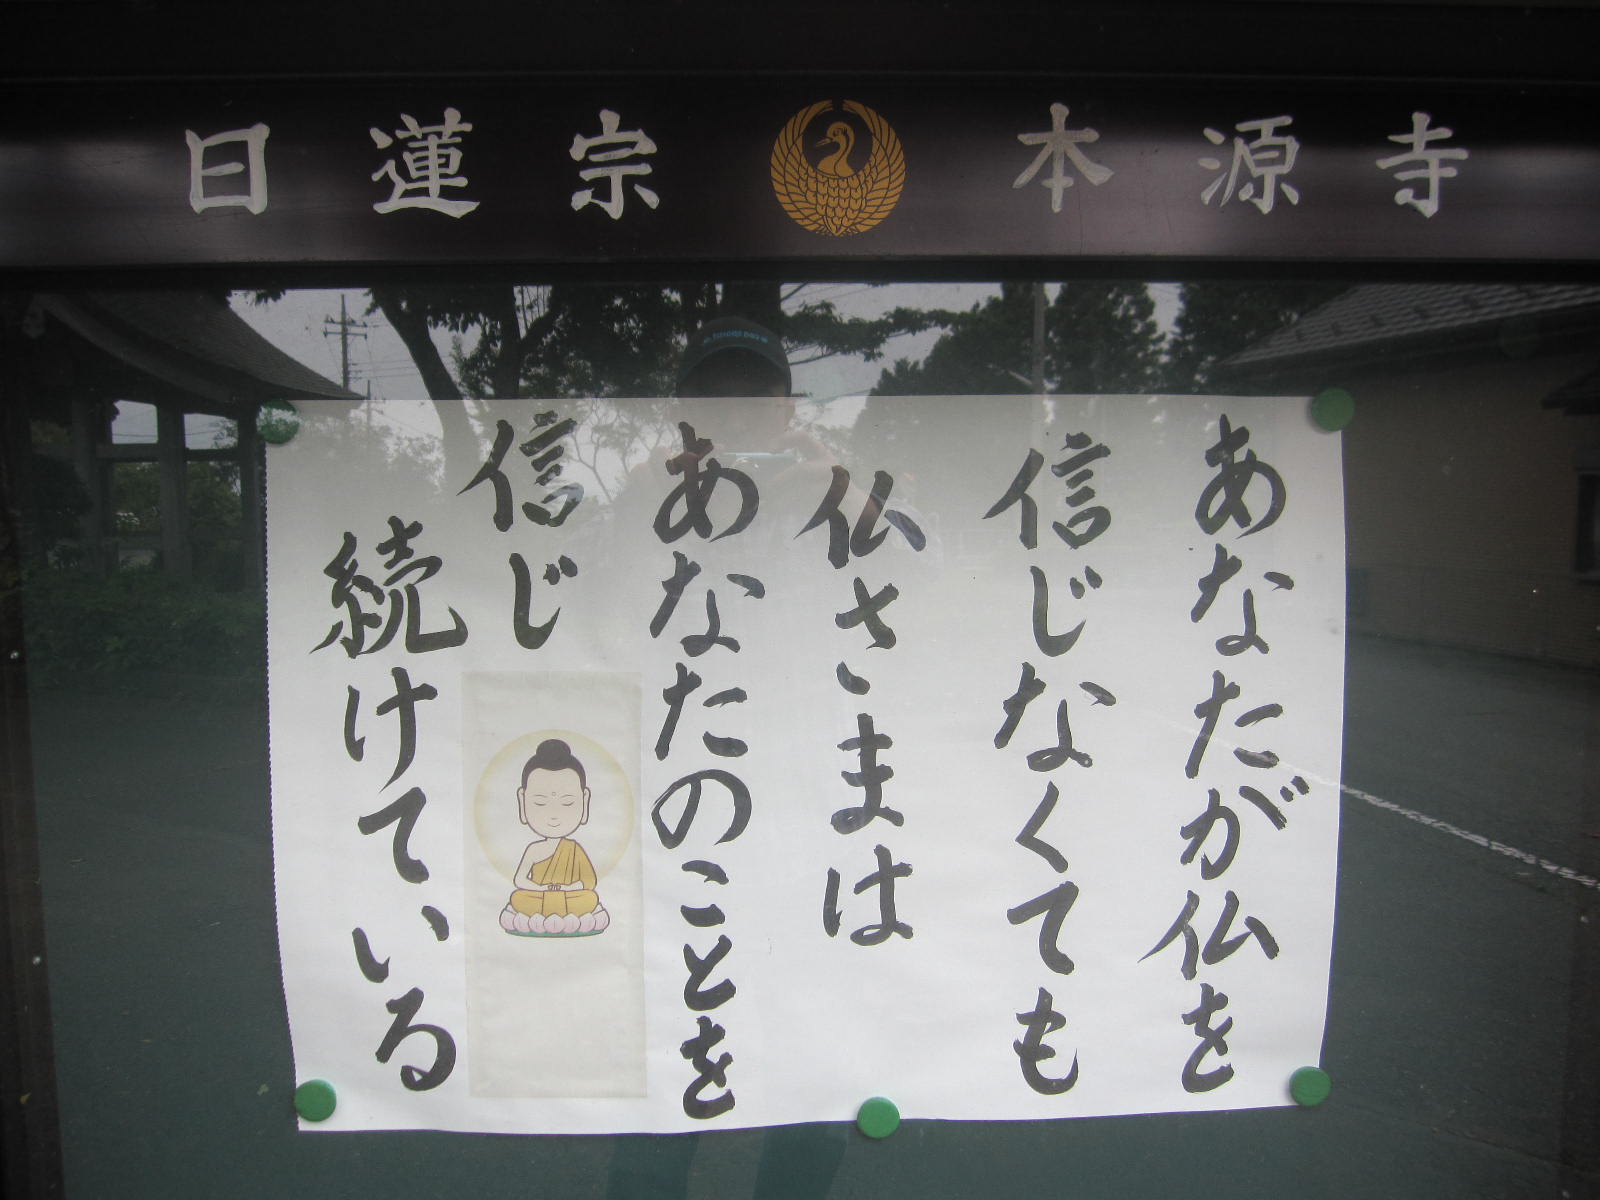 日蓮宗 本源寺
あなたが仏を
信じなくても
仏さまは
あなたのことを
信じ
続けている